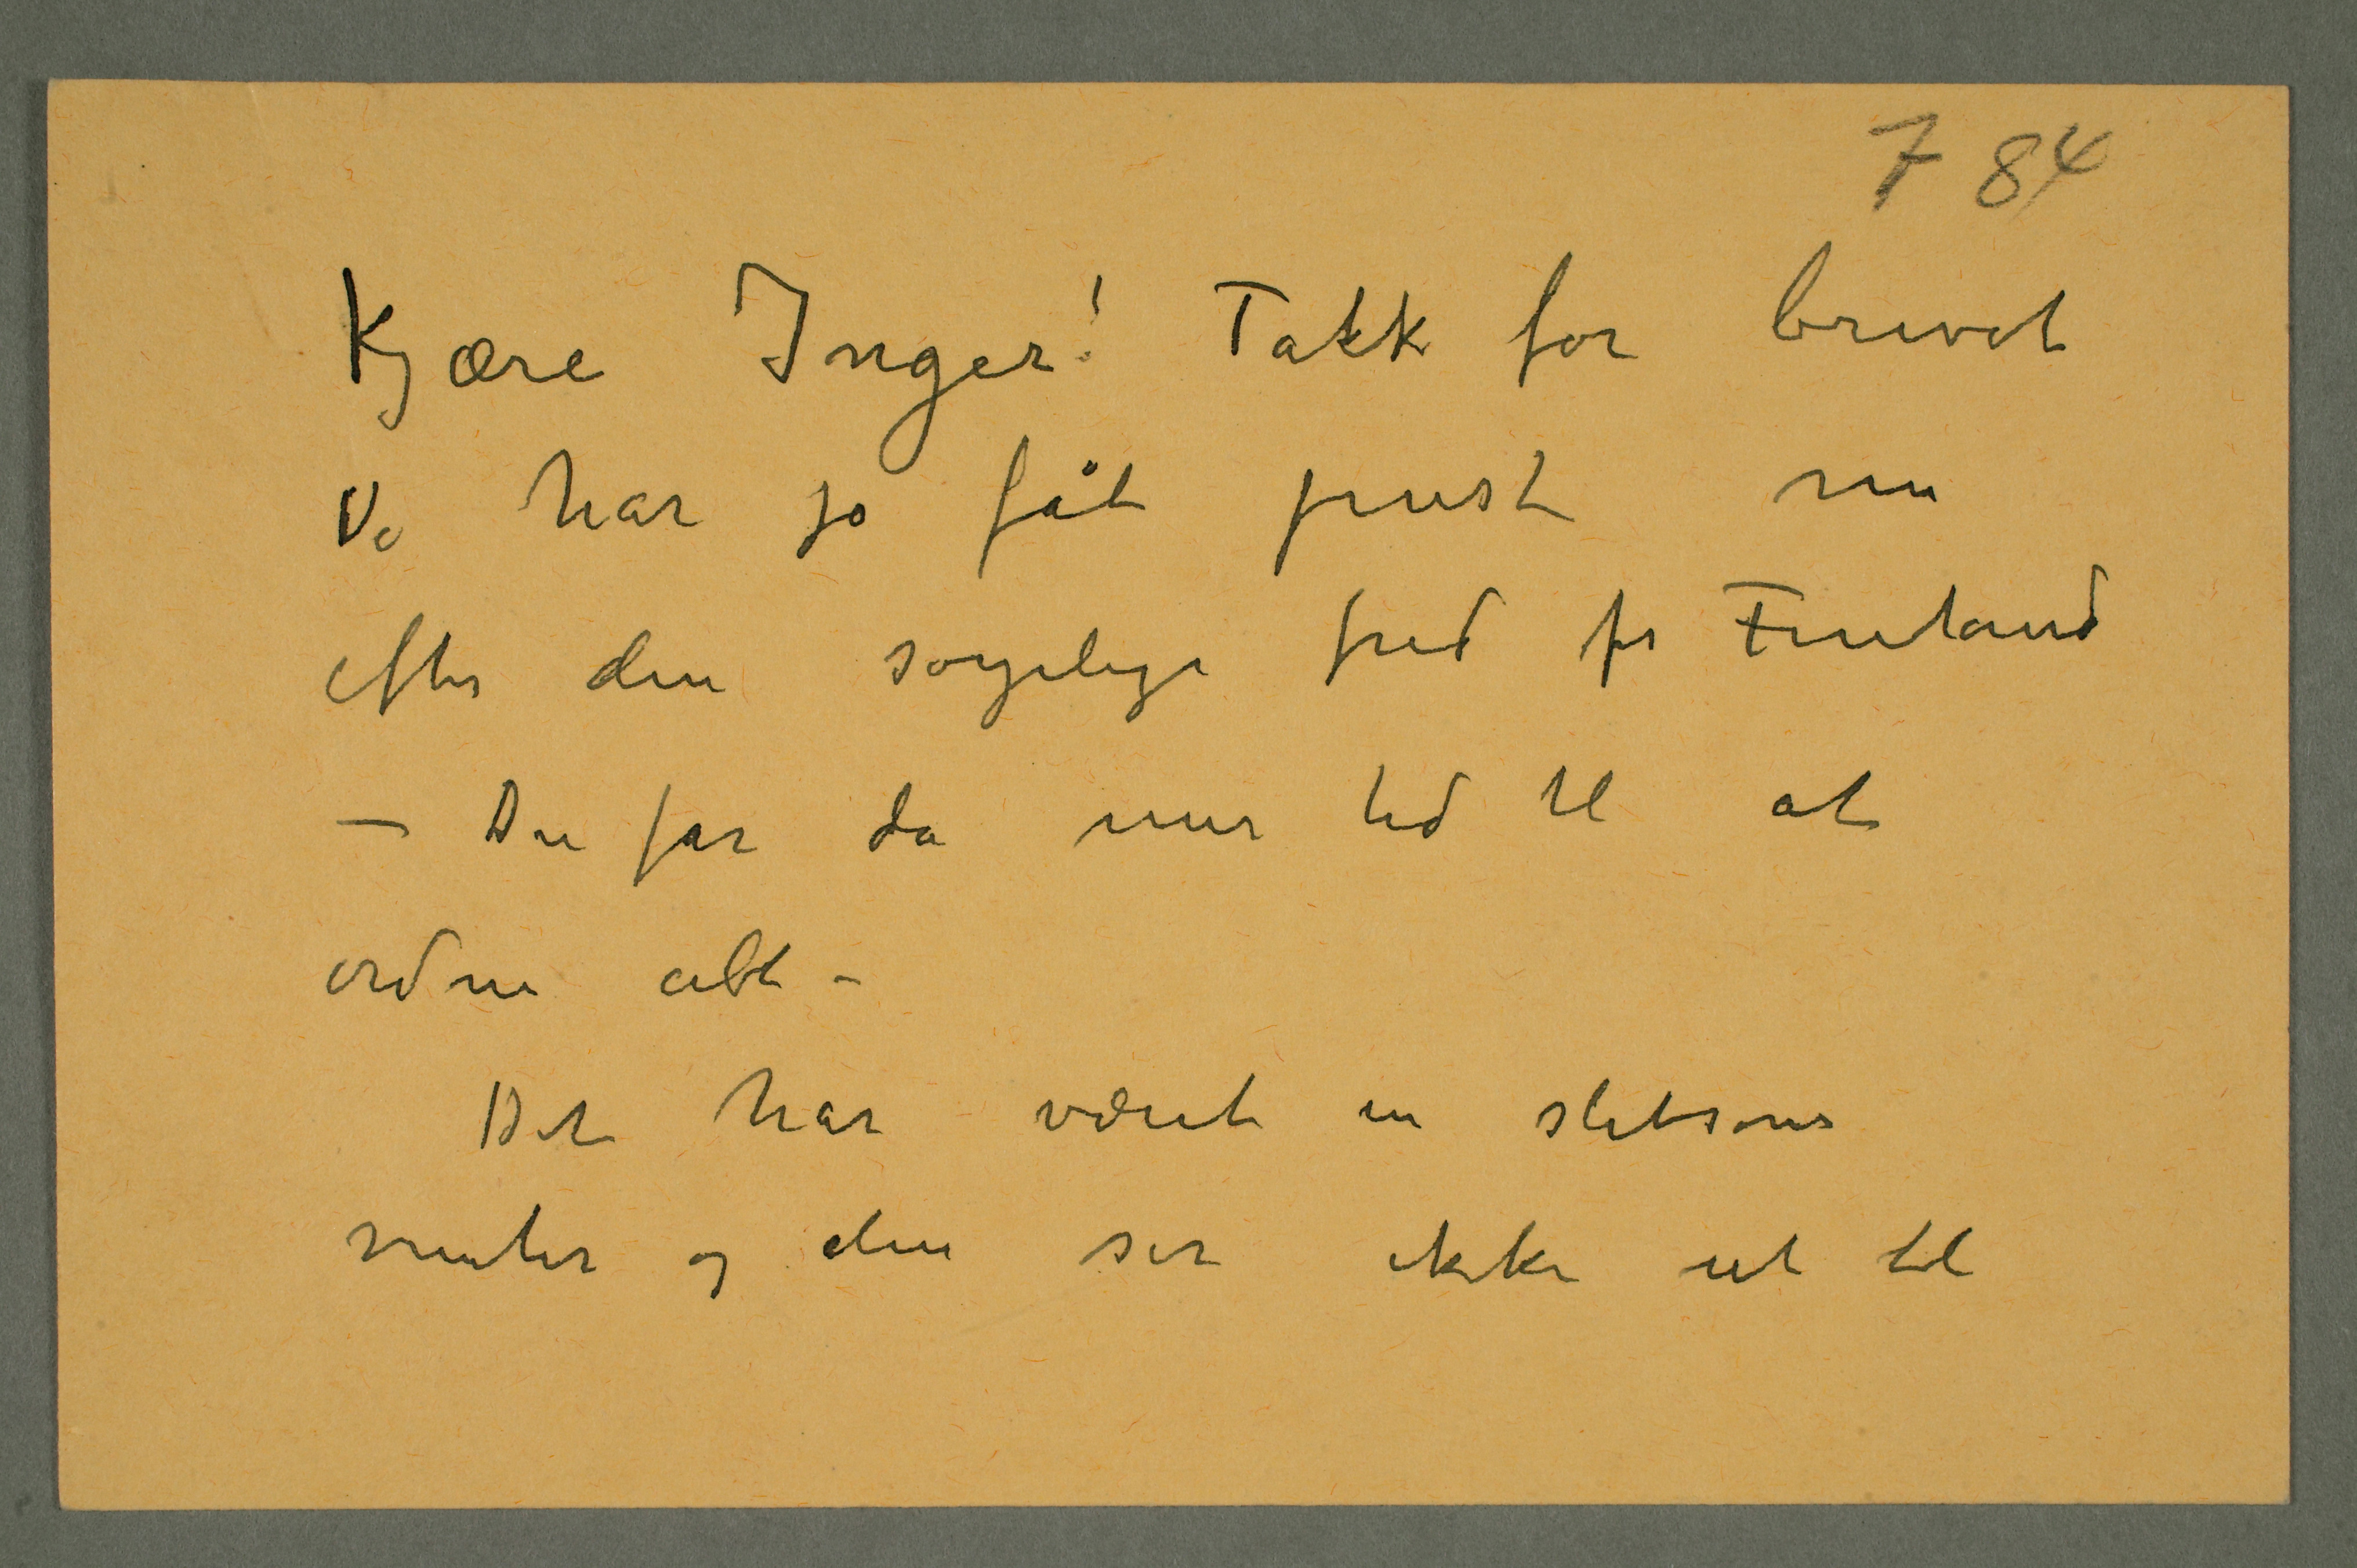 7 84
Kjære Inger! Takk for brevet
Vi har jo fåt pust nu
efter den sørgelige fred for Finland
– Du får da mer tid til at
ordne alt –
Det har været en slitsom
vinter og den ser ikke ut til